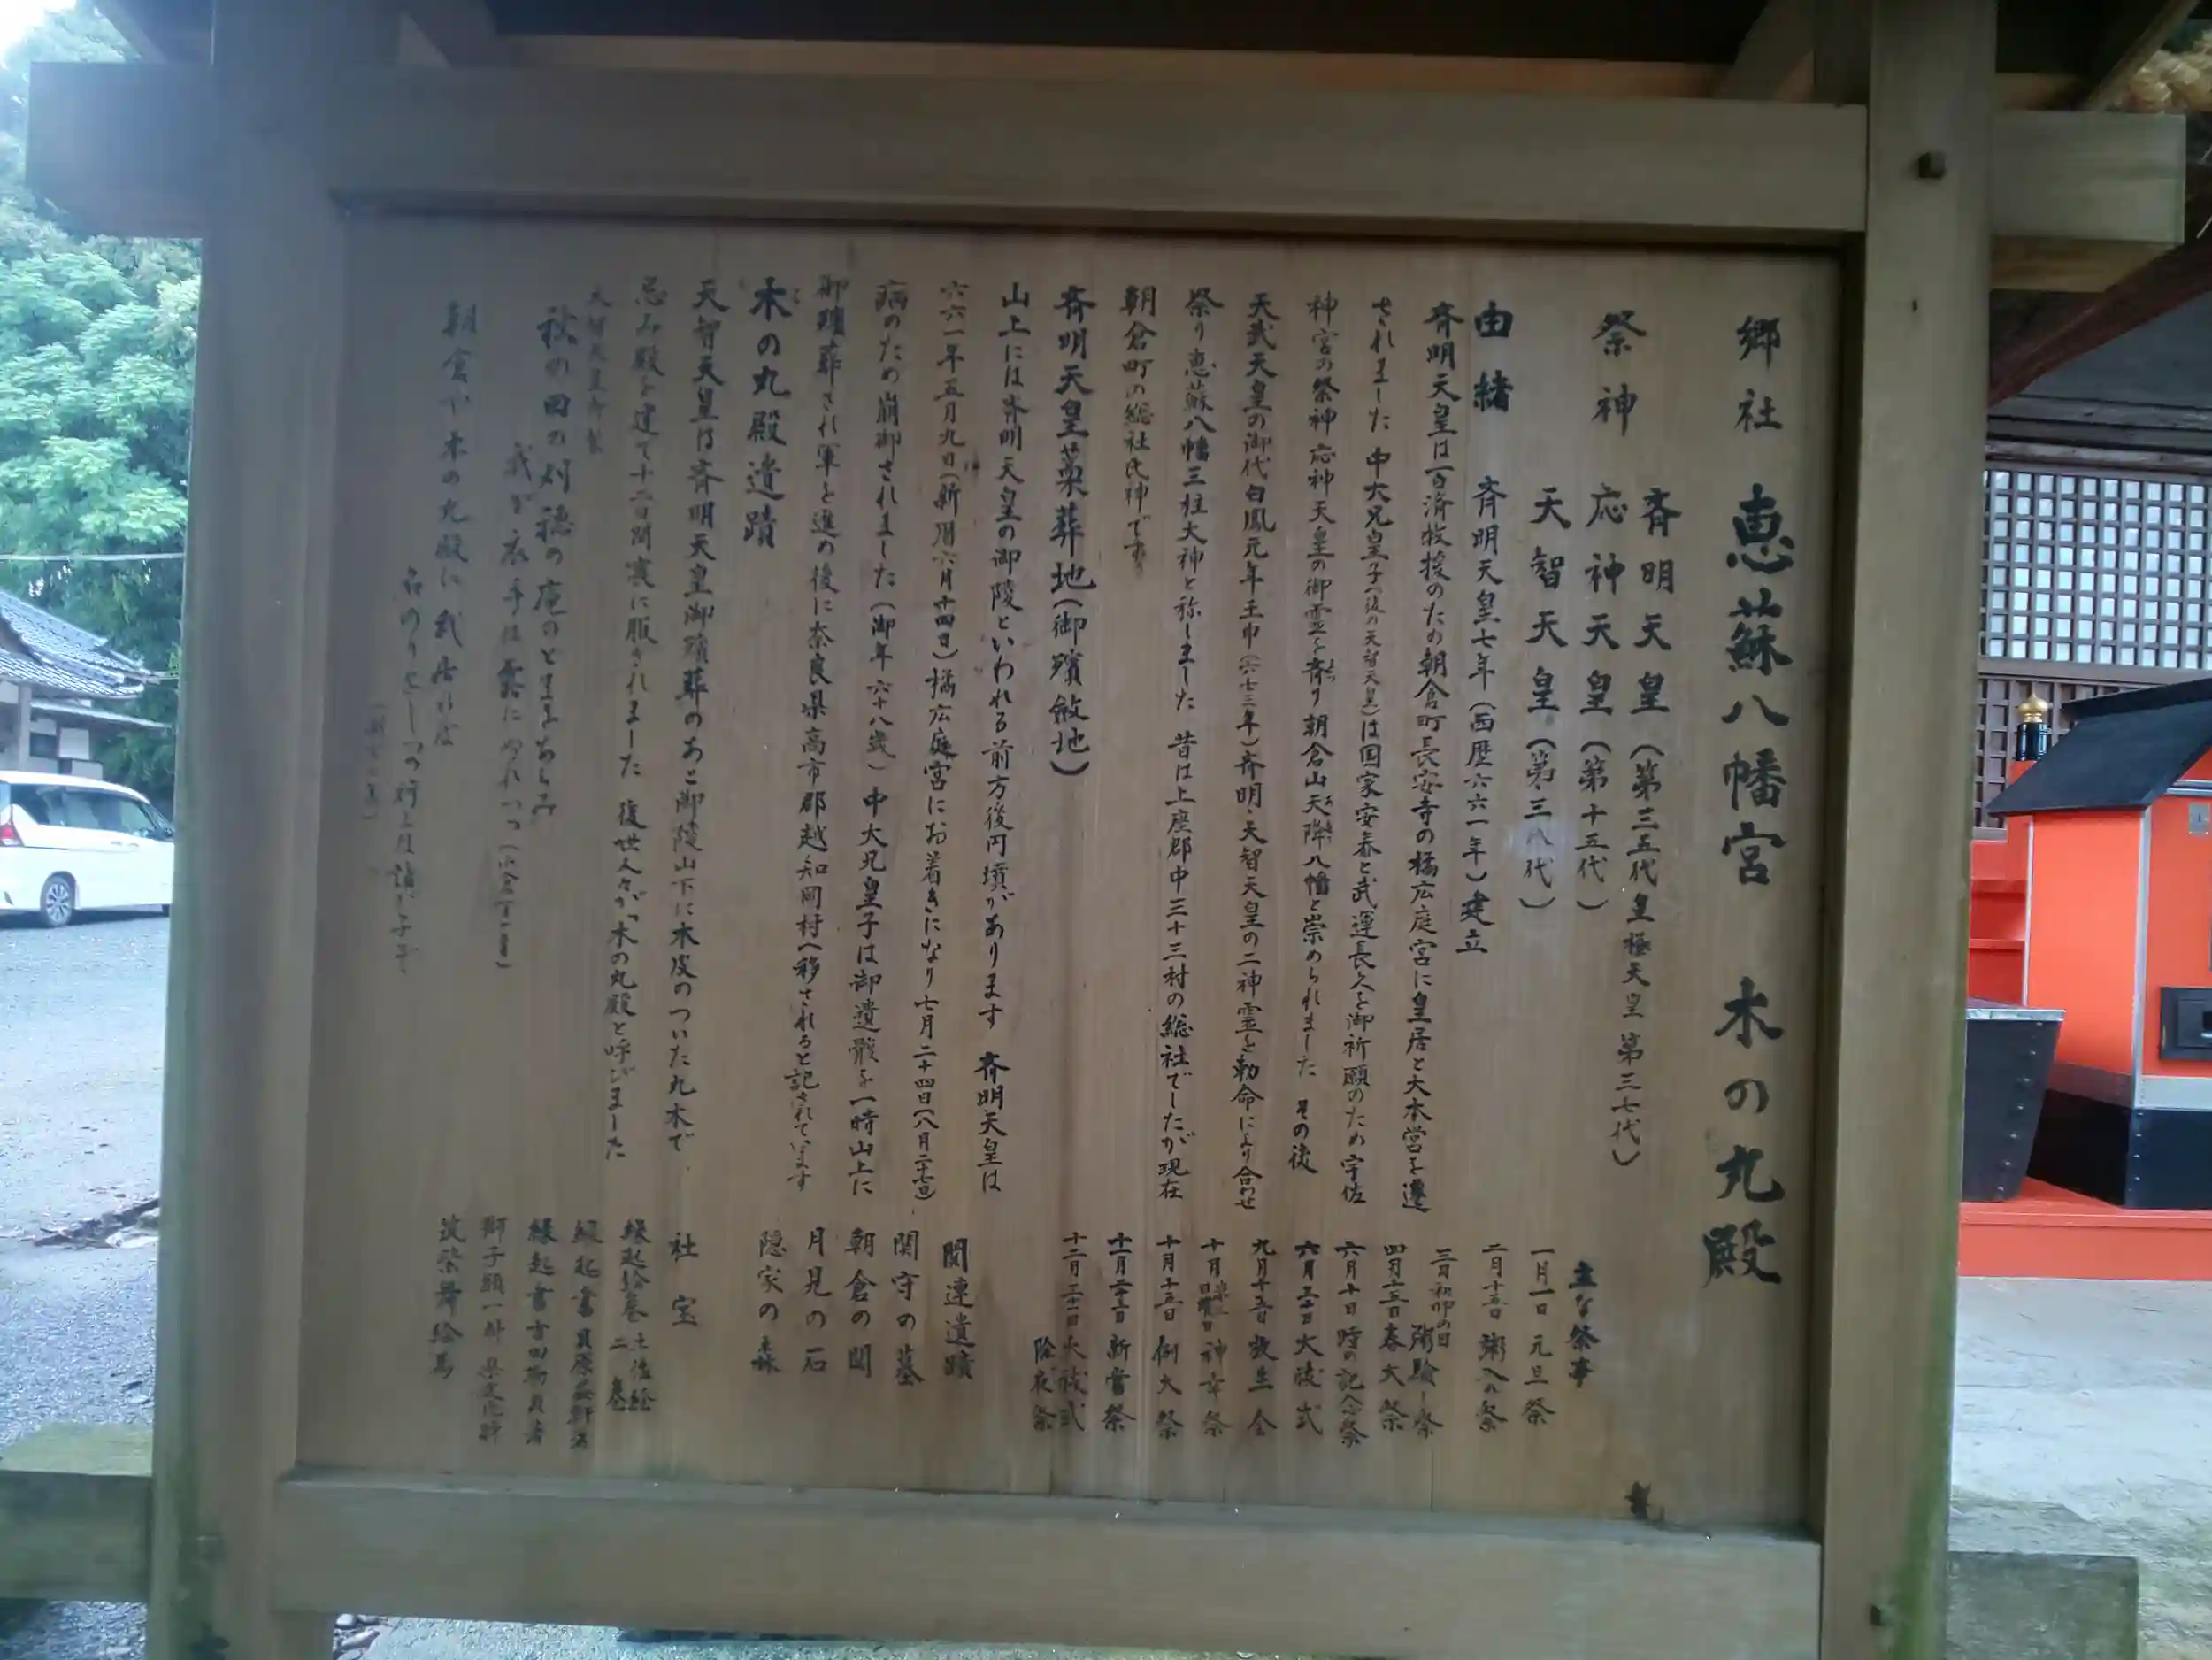 郷社 恵蘇八幡宮 木の丸殿
祭神
斉明天皇(第三五代皇極天皇 第三七代)
応神天皇(第十五代)
天智天皇(第三八代)
由緒 斉明天皇七年(西歴六六一年)建立
斉明天皇は百済救援のため朝倉町長安寺の橘広庭宮に皇居と大本営を遷
されました 中大兄皇子(後の天智天皇)は国家安泰と武運長久を御祈願のため宇佐
神宮の祭神応神天皇の御霊を斎り朝倉山天降八幡と崇められました その後
天武天皇の御代白鳳元年壬申(六七三年)斉明・天智天皇の二神霊を勅命により合わせ
祭り恵蘇八幡三柱大神と称しました 昔は上座郡中三十三村の総社でしたが現在
朝倉町の総社氏神です
斉明天皇藁葬地(御殯斂地)
山上には斉明天皇の御陵といわれる前方後円墳があります 斉明天皇は
六六一年五月九日(新暦六月十四日)橘広庭宮にお着きになり七月二十四日(八月二七日)
病のため崩御されました(御年六十八歳)中大兄皇子は御遺骸を一時山上に
御殯葬され軍を進め後に奈良県高市郡越知岡村へ移されると記されています
木の丸殿遺蹟
天智天皇は斉明天皇御殯葬のあと御陵山下に木皮のついた丸木で
忌み殿を建て十二日間喪に服されました 後世人々が木の丸殿と呼びました
天智天皇御製
秋の田の刈穂の庵のとまをあらみ
我が衣手は露にぬれつつ
朝倉や木の丸殿に我居れば
名のりをしつつ行くは誰が子ぞ
主な祭事
一月一日 元旦祭
二月十五日 粥入れ祭
三月初卯の日 粥験し祭
四月十五日 春大祭
六月十日 時の記念祭
六月三十日 大祓式
九月十五日 放生会
十月 日曜日 神幸祭
十月十五日 例大祭
十一月二十三日 新嘗祭
十二月三十一日 大祓式
除夜祭
関連遺蹟
関守の墓
朝倉の関
月見の石
隠家の森
社宝
縁起絵巻 土佐絵 二巻
縁起書 貝原益軒著
縁起書 古田物員著
獅子頭一対 県文化財
筑紫舞絵馬